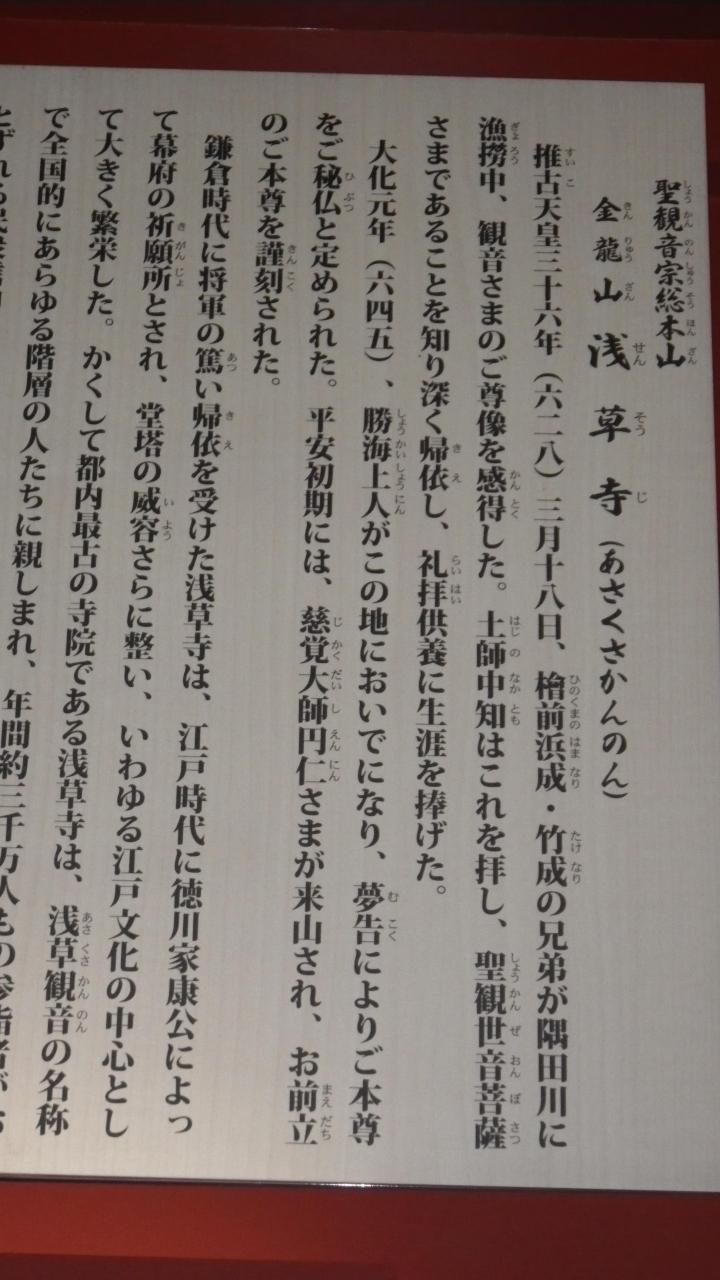 聖観音宗総本山
金龍山浅草寺(あさくさかんのん)
推古天皇三十六年(六二八)三月十八日、檜前浜成・竹成の兄弟が隅田川に
漁撈中、観音さまのご尊像を感得した。土師中知はこれを拝し、聖観世音菩薩
さまであることを知り深く帰依し、礼拝供養に生涯を捧げた。
大化元年(六四五)、勝海上人がこの地においでになり、夢告によりご本尊
をご秘仏と定められた。平安初期には、慈覚大師円仁さまが来山され、お前立
のご本尊を謹刻された。
鎌倉時代に将軍の篤い帰依を受けた浅草寺は、江戸時代に徳川家康公によっ
て幕府の祈願所とされ、堂塔の威容さらに整い、いわゆる江戸文化の中心とし
て大きく繁栄した。かくして都内最古の寺院である浅草寺は、浅草観音の名称
で全国的にあらゆる階層の人たちに親しまれ、年間約三千万人もの参詣者がお